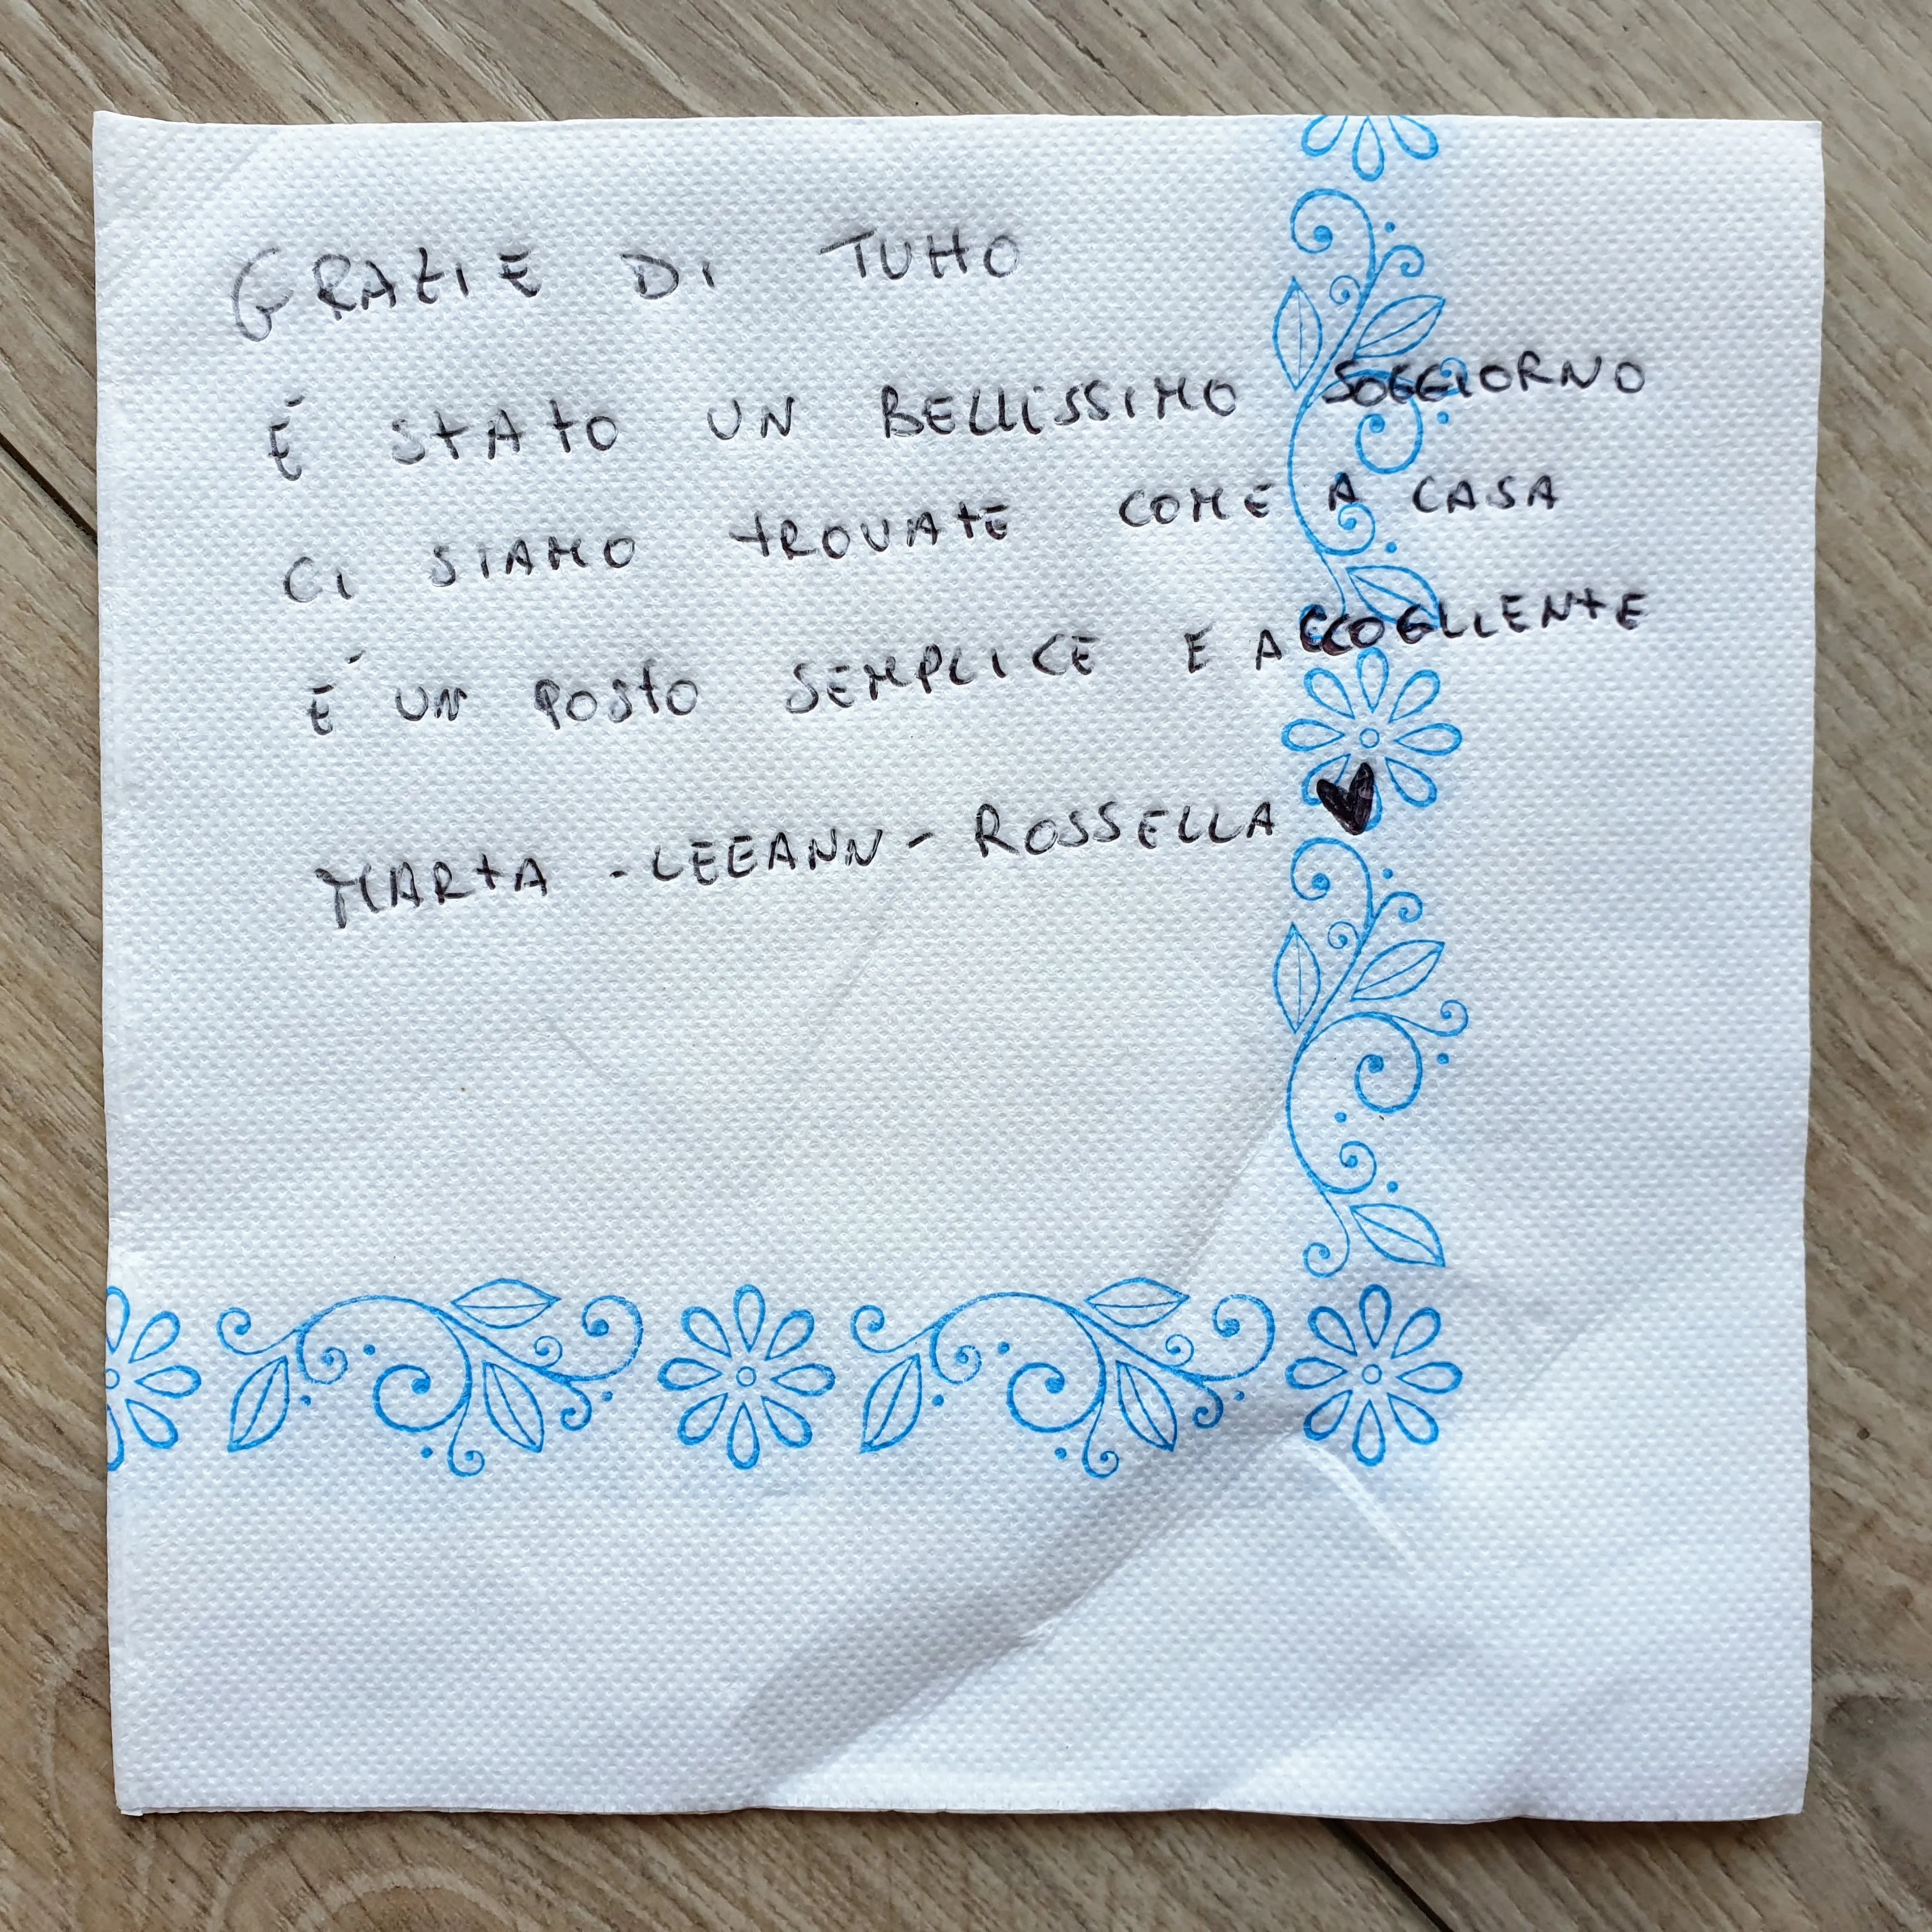 GRAZIE DI TUTTO
É STATO UN BELLISSIMO SOGGIORNO
CI SIAMO TROVATE COME A CASA
É UN POSTO SEMPLICE E ACCOGLIENTE
MARTA - LEEANN - ROSSELLA ♥